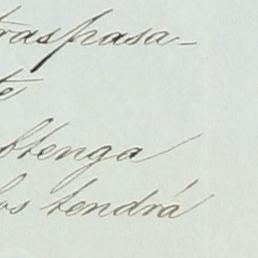 traspasa-
te
obtenga
los tendrá